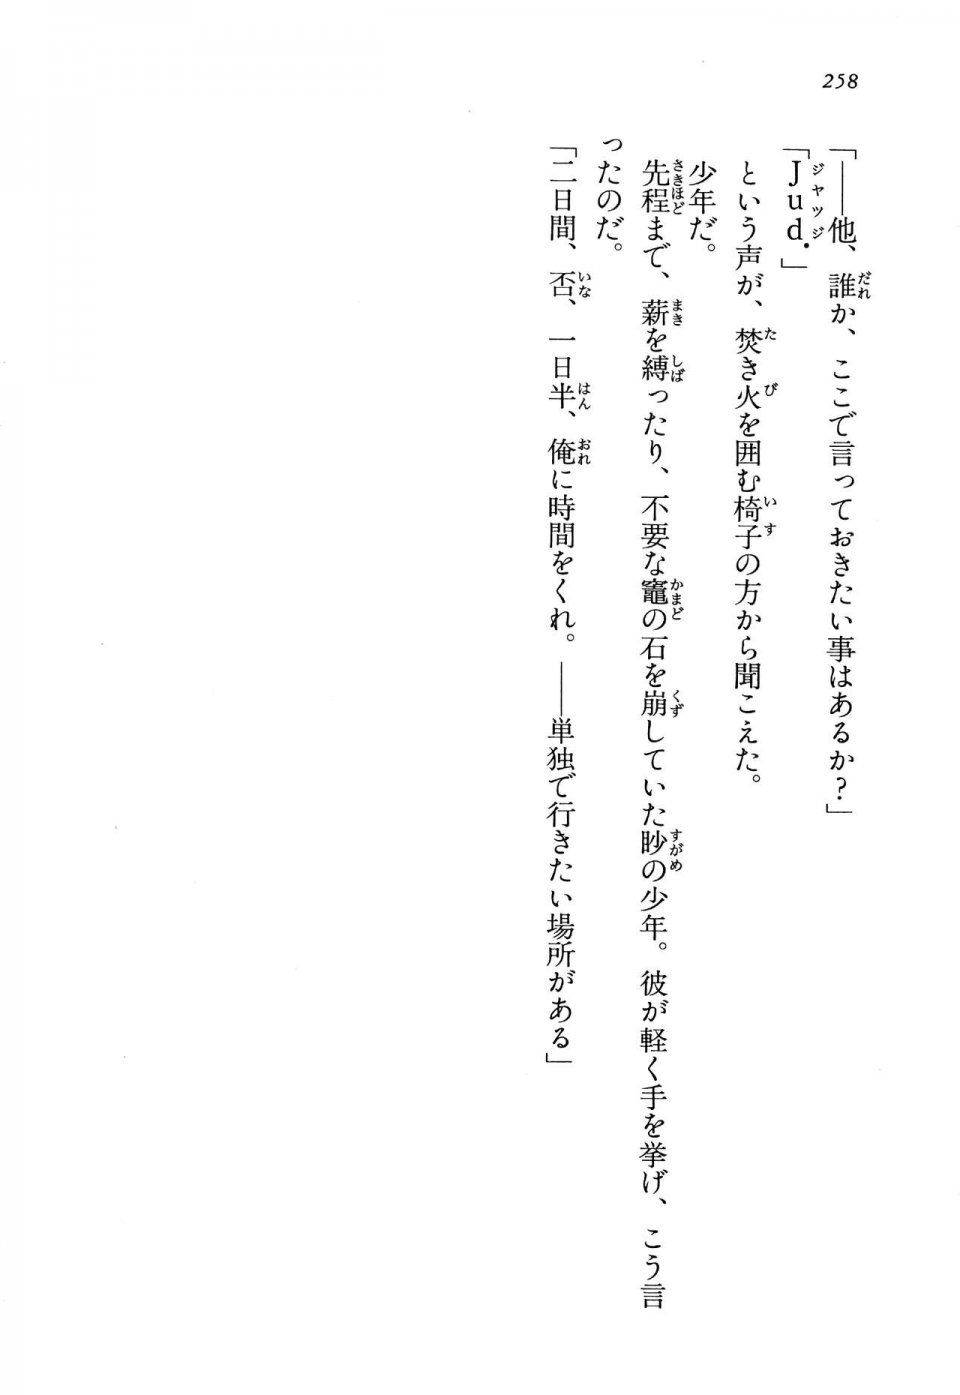 258
「――他、誰か、ここで言っておきたい事はあるか？」
「Jud.」
という声が、焚き火を囲む椅子の方から聞こえた。
少年だ。
先程まで、薪を縛ったり、不要な竈の石を崩していた眇の少年。彼が軽く手を挙げ、こう言
ったのだ。
「二日間、否、一日半、俺に時間をくれ。――単独で行きたい場所がある」